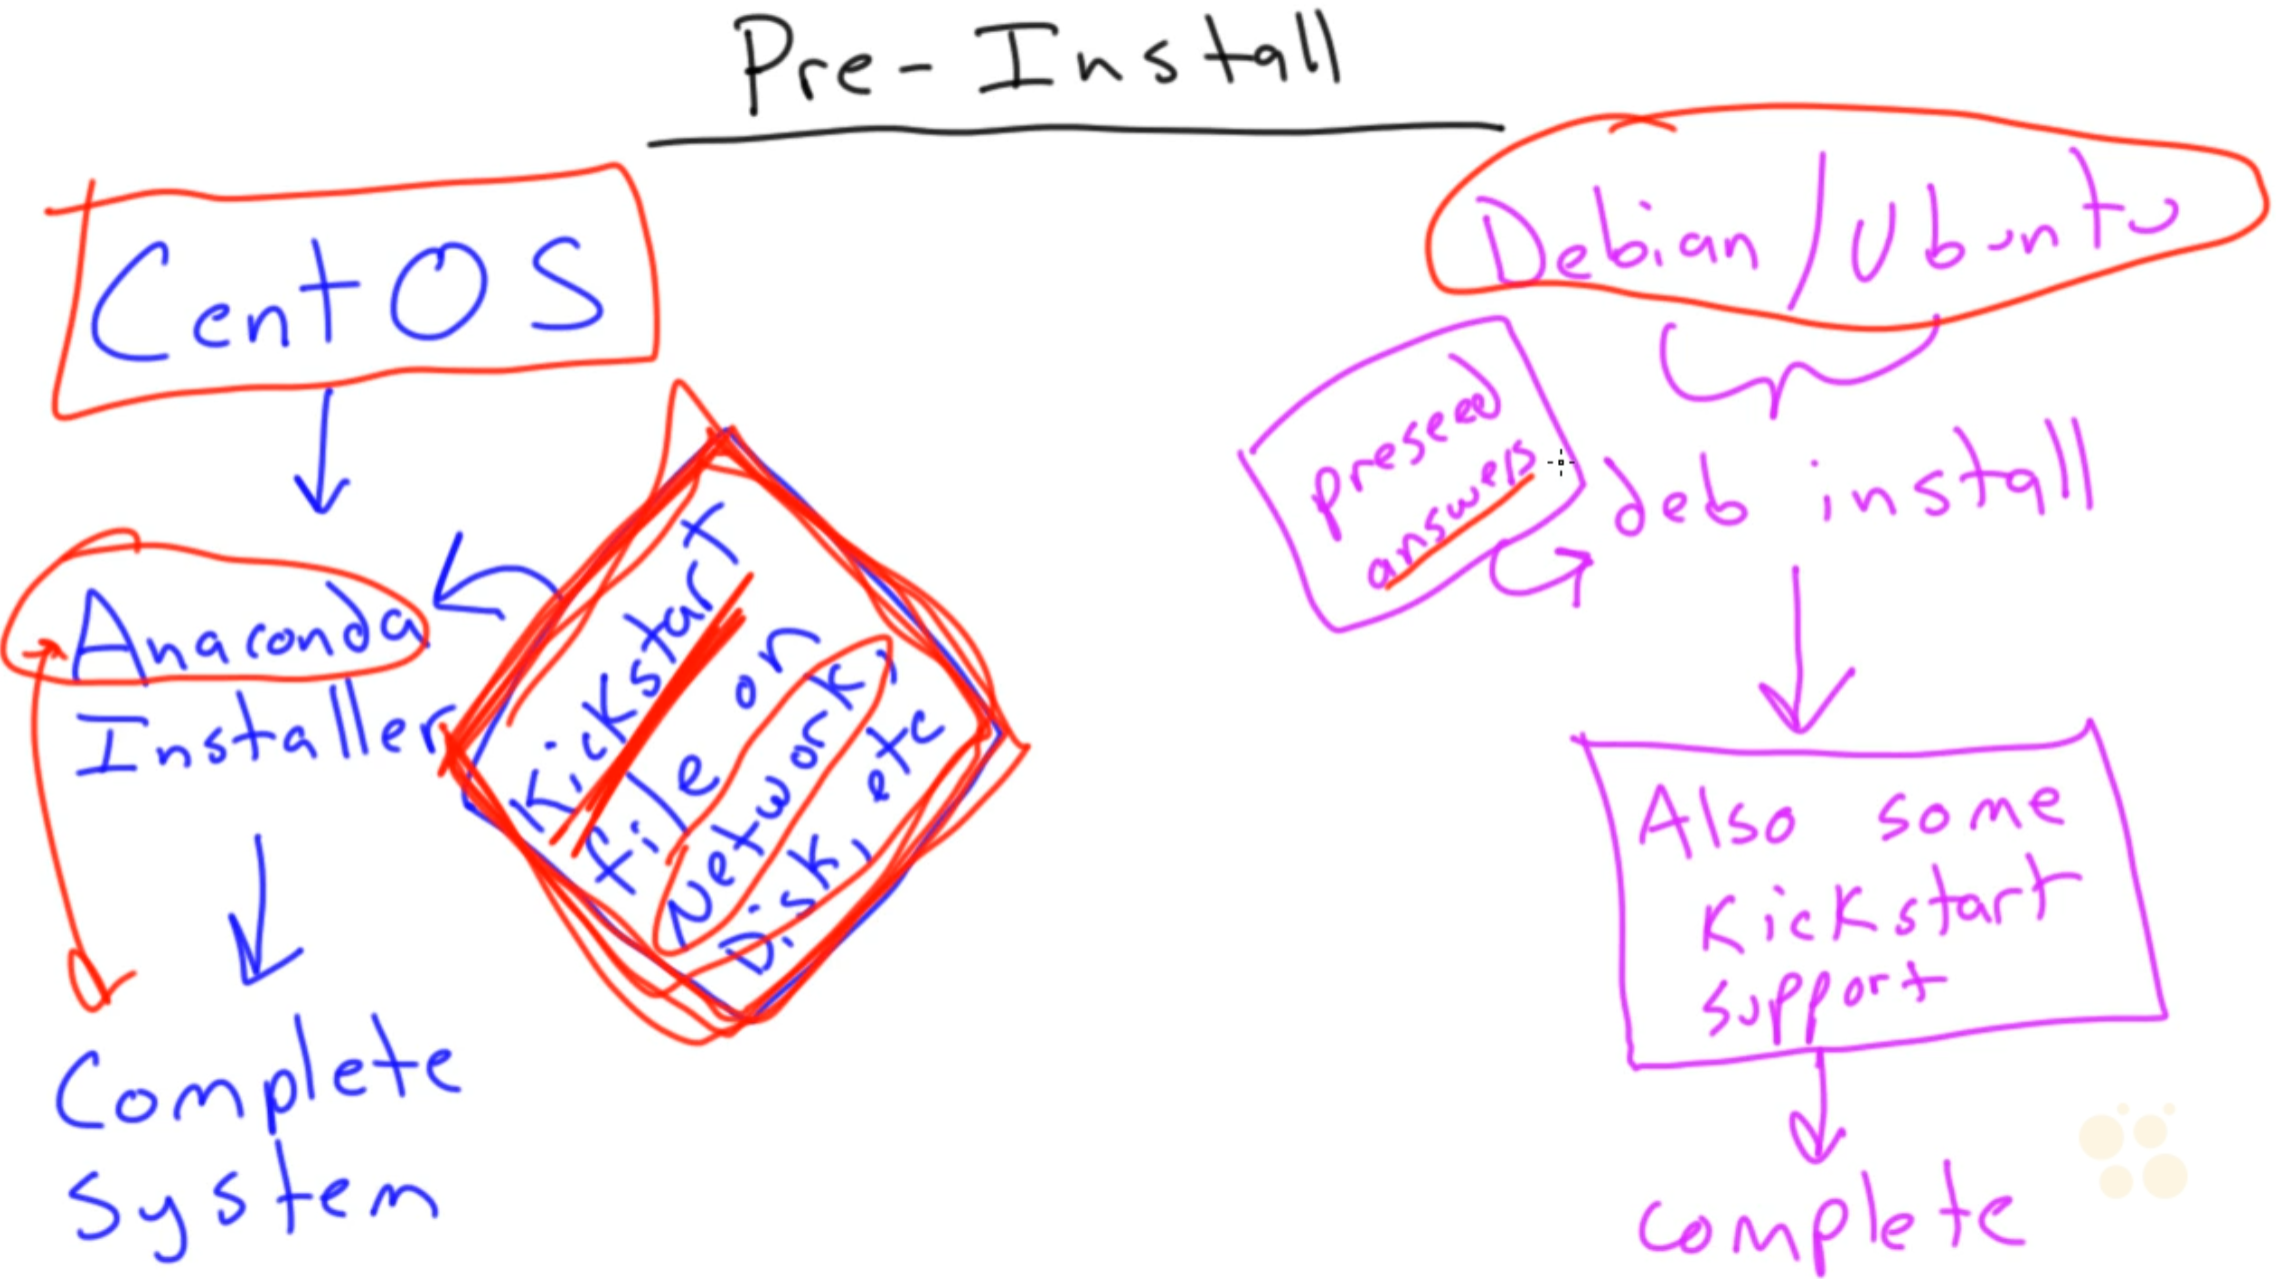 Pre-Install
CentOS
Anaconda
Installer
Complete
System
Kickstart
file or
Network,
Disk, etc
Debian/Ubuntu
preseed
answers
deb install
Also some
Kickstart
support
complete